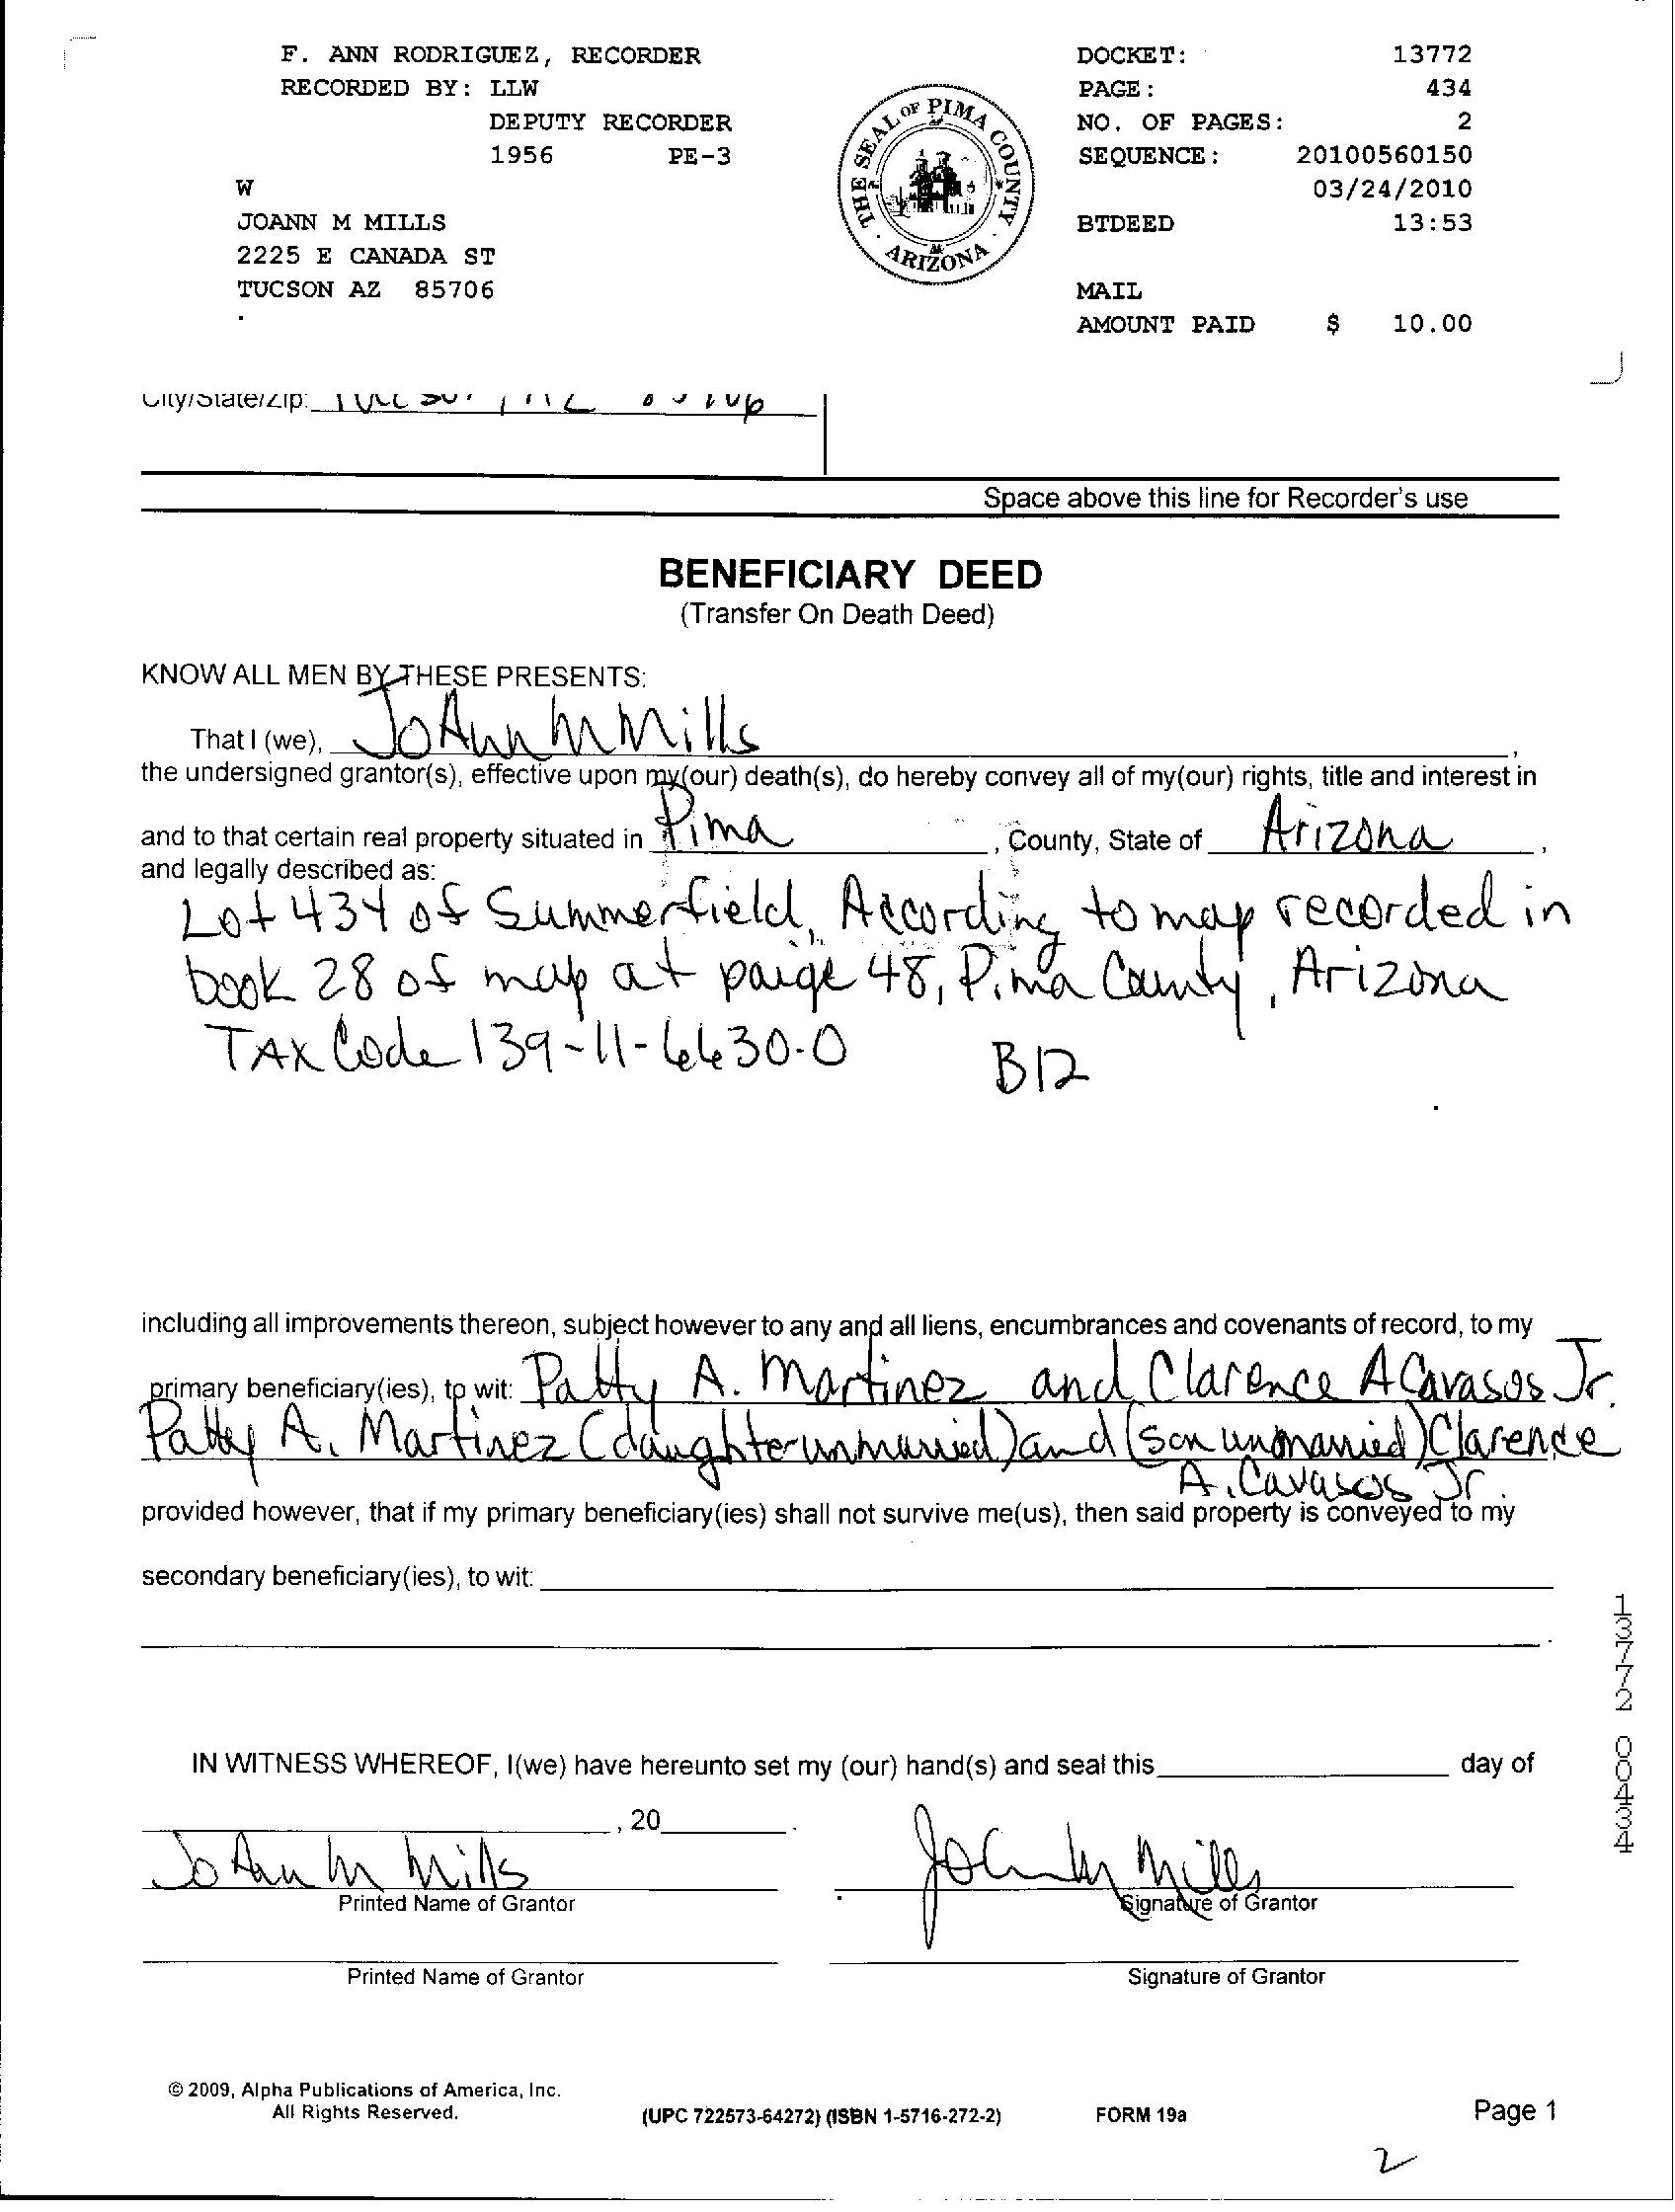 F. ANN RODRIGUEZ, RECORDER
RECORDED BY: LLW
DEPUTY RECORDER
1956 PE-3
W
JOANN M MILLS
2225 E CANADA ST
TUCSON AZ 85706
.
THE SEAL OF PIMA COUNTY
ARIZONA
DOCKET: 13772
PAGE: 434
NO. OF PAGES: 2
SEQUENCE: 20100560150
03/24/2010
BTDEED 13:53
MAIL
AMOUNT PAID $ 10.00
City/State/Zip:
Space above this line for Recorder's use
BENEFICIARY DEED
(Transfer On Death Deed)
KNOW ALL MEN BY THESE PRESENTS:
That I (we), JoAnn M Mills,
the undersigned grantor(s), effective upon my(our) death(s), do hereby convey all of my(our) rights, title and interest in
and to that certain real property situated in Pima, County, State of Arizona,
and legally described as:
Lot 434 of Summerfield, According to map recorded in
book 28 of map at paige 48, Pima County, Arizona
TAX Code 139-11-6630-0 B12
including all improvements thereon, subject however to any and all liens, encumbrances and covenants of record, to my
primary beneficiary(ies), to wit: Patty A. Martinez and Clarence A Cavasos Jr.
Patty A. Martinez (daughter unmarried) and (son unmarried) Clarence
A. Cavasos Jr.
provided however, that if my primary beneficiary(ies) shall not survive me(us), then said property is conveyed to my
secondary beneficiary(ies), to wit:
IN WITNESS WHEREOF, I(we) have hereunto set my (our) hand(s) and seal this day of
, 20 .
JoAnn M Mills JoAnn M Mills
Printed Name of Grantor Signature of Grantor
Printed Name of Grantor Signature of Grantor
13772 00434
© 2009, Alpha Publications of America, Inc.
All Rights Reserved.
(UPC 722573-64272) (ISBN 1-5716-272-2) FORM 19a Page 1
2